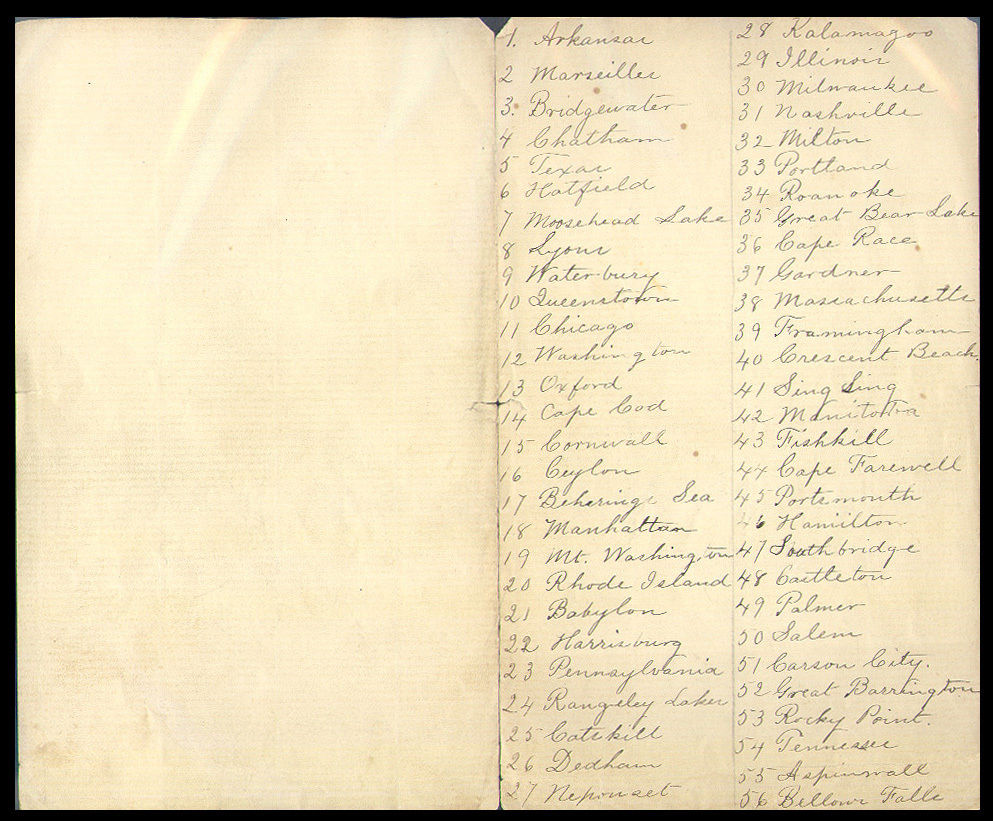 1. Arkansas
2 Marseilles
3. Bridgewater
4 Chatham
5 Texas
6 Hatfield
7 Moosehead Lake
8 Lyons
9 Waterbury
10 Queenstown
11 Chicago
12 Washington
13 Oxford
14 Cape Cod
15 Cornwall
16 Ceylon
17 Beherings Sea
18 Manhattan
19 Mt. Washington
20 Rhode Island
21 Babylon
22 Harrisburg
23 Pennsylvania
24 Rangeley Lakes
25 Catskill
26 Dedham
27 Neponset
28 Kalamagoo
29 Illinois
30 Milwaukee
31 Nashville
32 Milton
33 Portland
34 Roanoke
35 Great Bear Lake
36 Cape Race
37 Gardner
38 Massachusetts
39 Framingham
40 Crescent Beach.
41 Sing Sing
42 Manitoba
43 Fishkill
44 Cape Farewell
45 Portsmouth
46 Hamilton
47 Southbridge
48 Castleton
49 Palmer
50 Salem
51 Carson City.
52 Great Barrington
53 Rocky Point.
54 Tennessee
55 Aspinwall
56 Bellows Falls